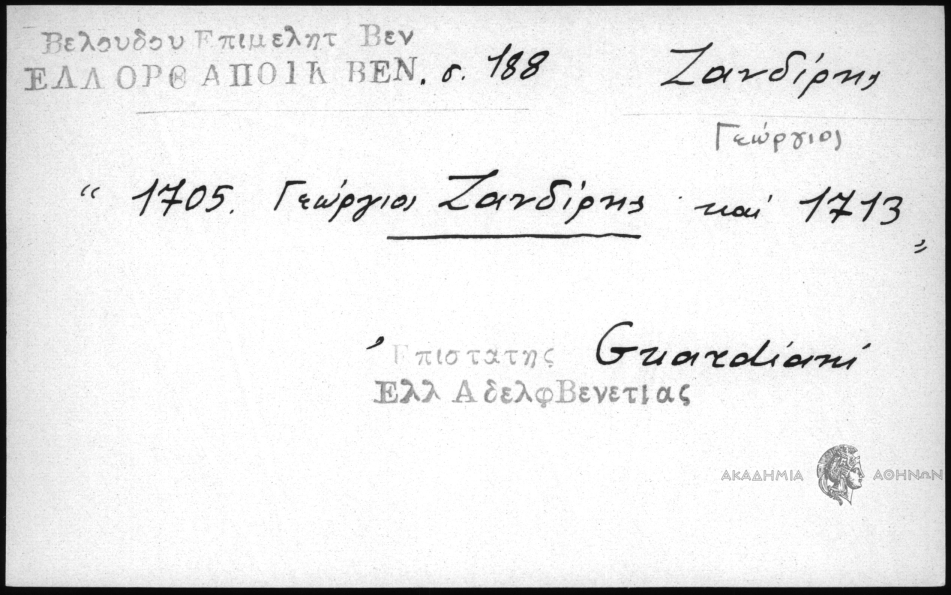 Βελουδου Επιμελητ Βεν
ΕΛΛ ΟΡΘ ΑΠΟΙΚ ΒΕΝ. σ. 188
Ζανδίρης
Γεώργιος
“ 1705. Γεώργιος Ζανδίρης καί 1713 „
Επιστατης Guardiani
Ελλ Αδελφ Βενετιας
ΑΚΑΔΗΜΙΑ ΑΘΗΝΩΝ